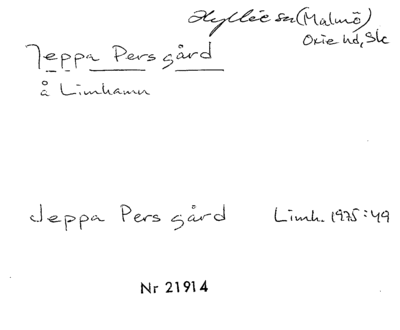 Hyllie sn (Malmö)
Oxie hd, Sk
Jeppa Pers gård
å Limhamn
Jeppa Pers gård Limh. 1975:49
Nr 21914